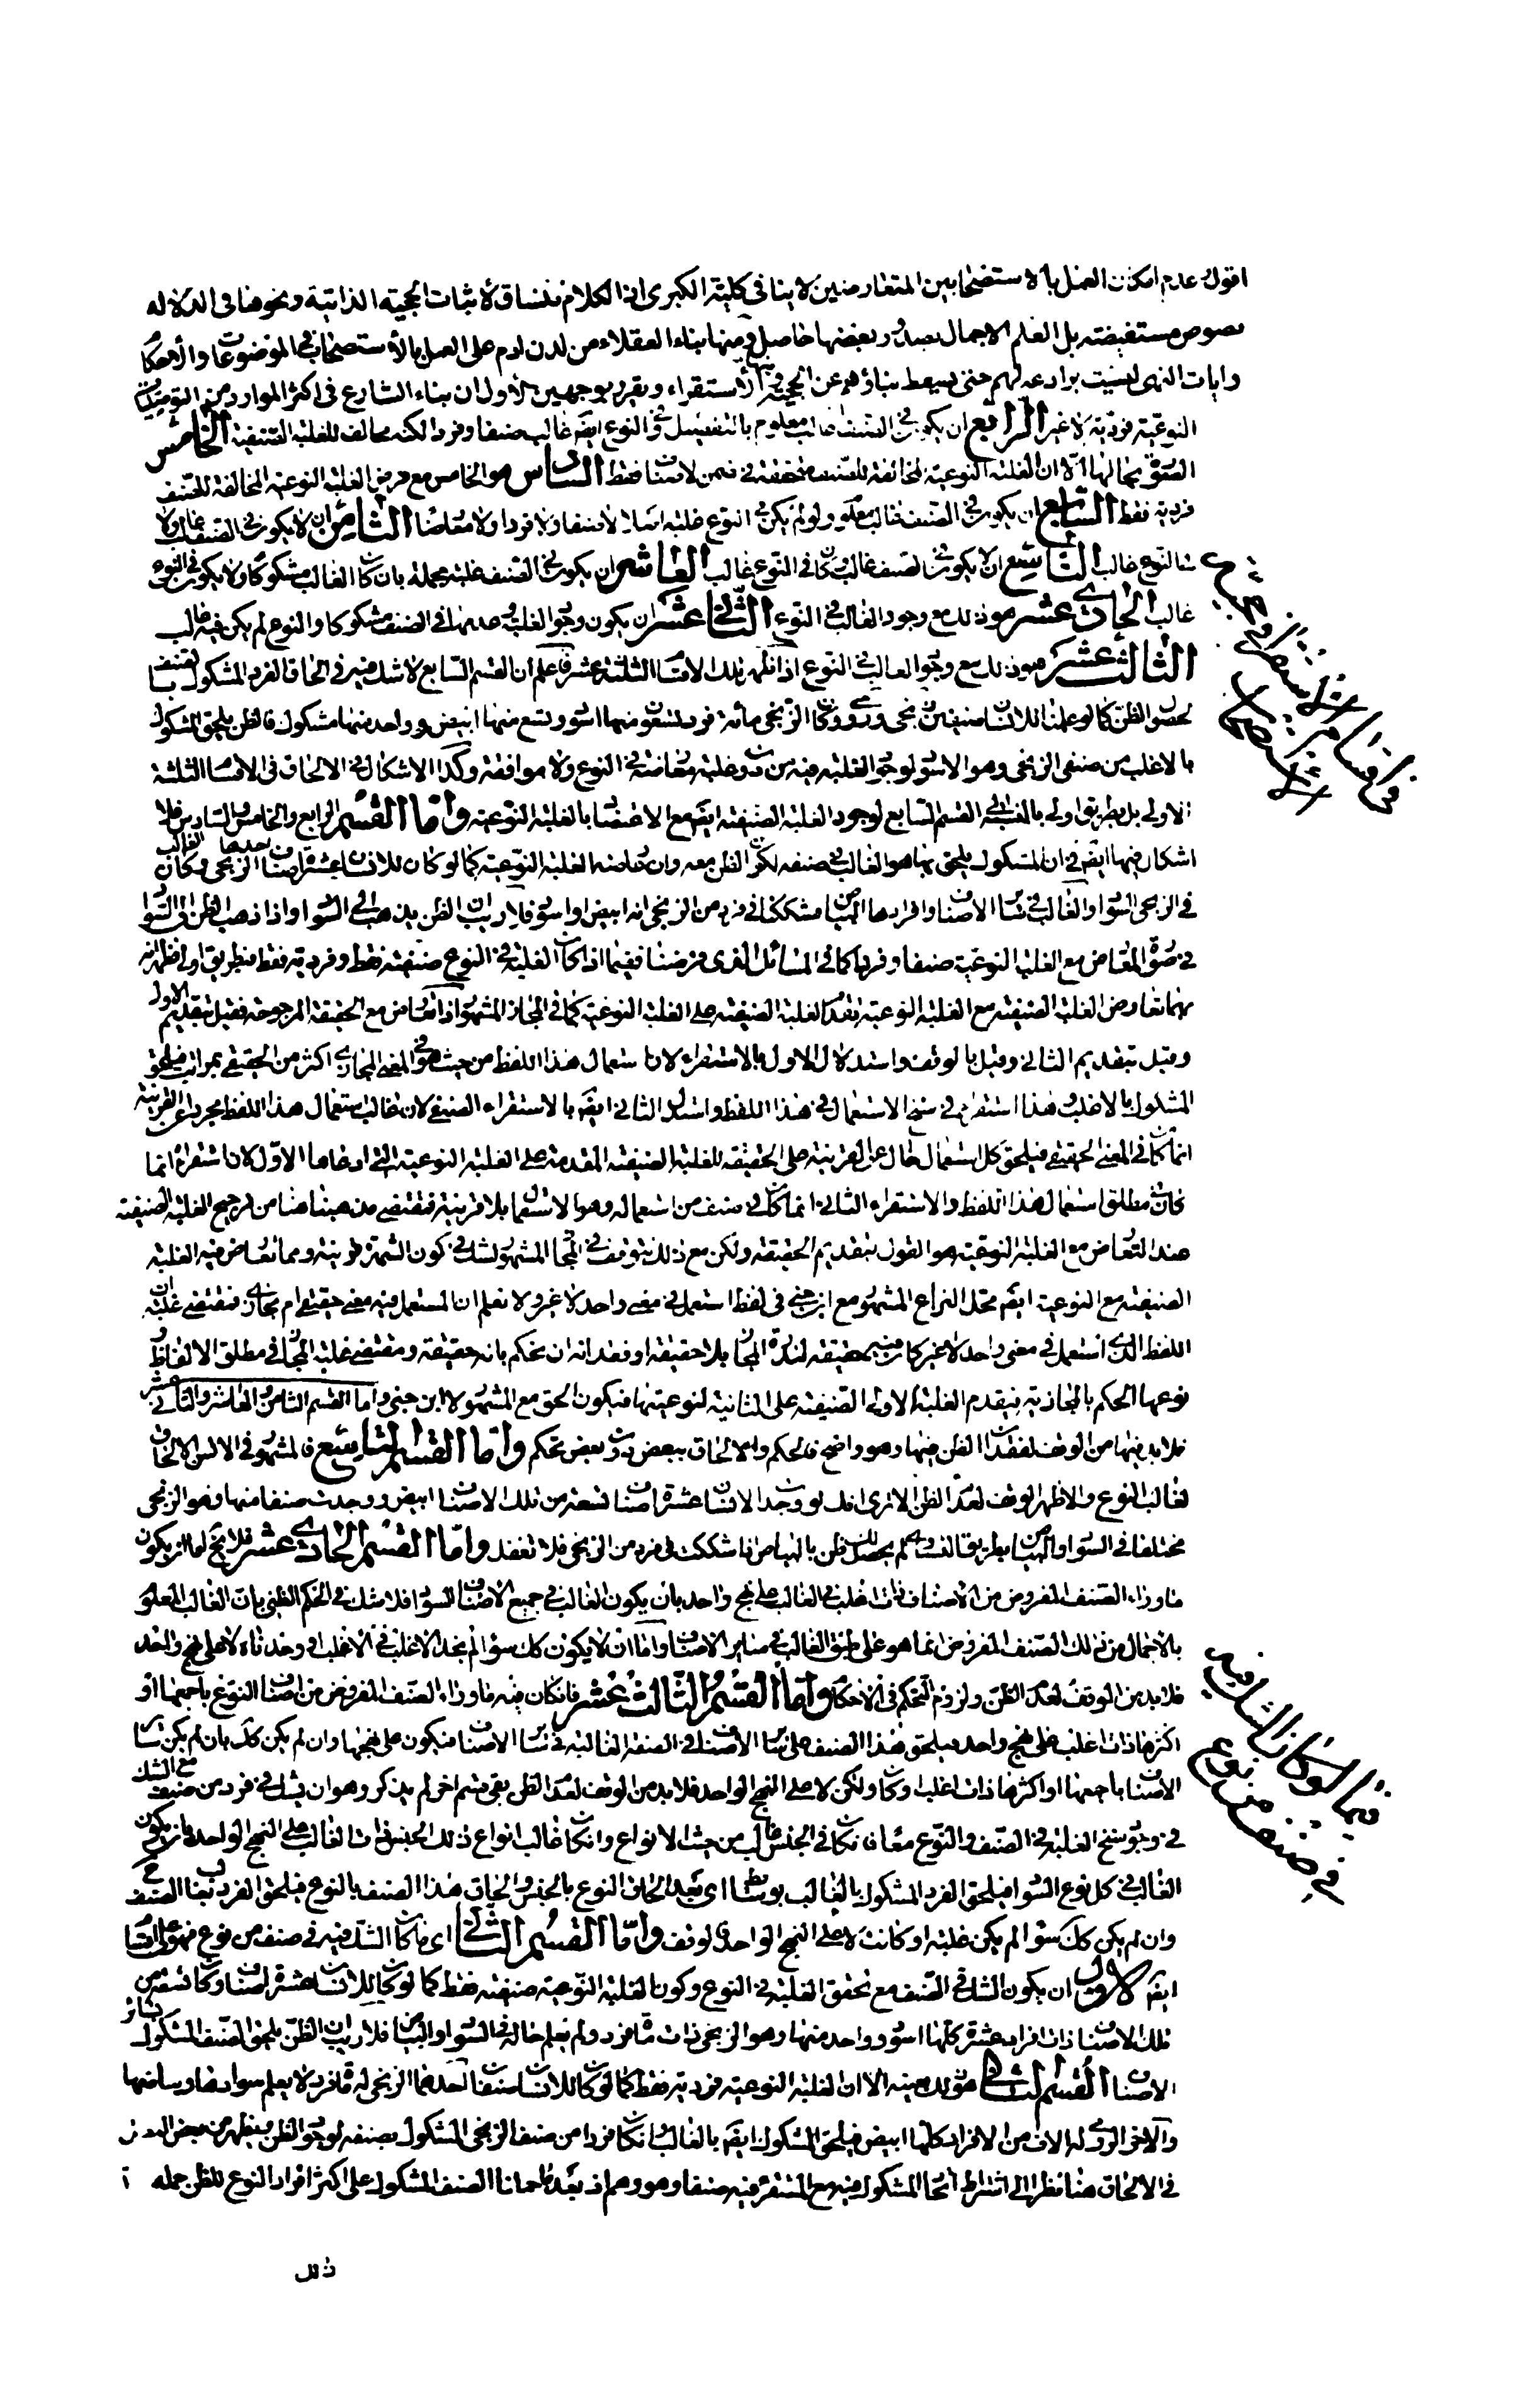 اقول عدم امكان العمل بالاستصحابين المتعارضين لا ينافى كلية الكبرى اذ الكلام منساق لاثبات الحجية الذاتية ونحوها فى الدلالة
نصوص مستفيضة بل العلم الاجمالى بصدور بعضها حاصل ومنها بناء العقلاء من لدن ادم على العمل بالاستصحاب فى الموضوعات والاحكام
وايات النهى ليست برادعة لهم حتى يسقط بناؤهم عن الحجية ومنها الاستقراء ويقرر بوجهين الاول ان بناء الشارع فى اكثر الموارد من
النوعية فردية لا غير الرابع ان يكون فى الصنف غالب معلوم بالتفصيل وفى النوع ايضا غالب صنفا وفردا لكنه مخالف للغلبة الصنفية الخامس
الصورة بحالها الا ان الغلبة النوعية المخالفة للصنف متحققة فى ضمن الاصناف فقط السادس هو الخامس مع فرض الغلبة النوعية المخالفة للصنف
فردية فقط السابع ان يكون فى الصنف غالب معلوم ولو لم يكن فى النوع غلبة اصلا لا صنفا ولا فردا ولا معارضا الثامن ان لا يكون فى الصنف غالب ولا
فى النوع غالب التاسع ان لا يكون فى الصنف غالب وكان فى النوع غالب العاشر ان يكون فى الصنف غلبة مجملة بان كان الغالب مشكوكا ولا يكون فى النوع
غالب الحادى عشر هو ذلك مع وجود الغالب فى النوع الثانى عشر ان يكون وجود الغلبة وعدمها فى الصنف مشكوكا والنوع لم يكن فيه غالب
الثالث عشر هو ذلك مع وجود الغالب فى النوع اذا ظهر تلك الاقسام الثلثة عشر فاعلم ان القسم السابع لا شك فيه فى الحاق الفرد المشكوك بصنفه
لحصول الظن كما لو علمنا ان للانسان صنفين زنجى ورومى وكان الزنجى مائة فرد تسعون منها اسود وتسع منها ابيض وواحد منها مشكوك فالظن يلحق المشكوك
بالاغلب من صنفى الزنجى وهو الاسود لوجود الغلبة فيه من دون غلبة معارضة فى النوع ولا موافقة وكذا لا اشكال فى الالحاق فى الاقسام الثلثة
الاولى بل بطريق اولى بالنسبة الى القسم السابع لوجود الغلبة الصنفية ايضا مع الاعتضاد بالغلبة النوعية واما القسم الرابع والخامس والسادس فلا
اشكال فيها ايضا فى ان المشكوك يلحق بما هو الغالب فى صنفه لكون الظن معه وان عارضه الغلبة النوعية كما لو كان للانسان عشرة اصناف احدها الزنجى وكان الغالب
فى الزنجى السواد والغالب فى سائر الاصناف وافرادها البياض شككنا فى فرد من الزنجى انه ابيض او اسود فلا ريب ان الظن يذهب الى السواد واذا ذهب الظن الى السواد
فى صورة التعارض مع الغلبة النوعية صنفا وفردا كما فى المسائل التى فرضنا ففيما اذا كان الغلبة فى النوع صنفية فقط وفردية فقط فبطريق اولى فظهر انه
مهما تعارض الغلبة الصنفية مع الغلبة النوعية يقدم الغلبة الصنفية على الغلبة النوعية كما فى المجاز المشهور اذا تعارض مع الحقيقة المرجوحة فقيل بتقديم الاول
وقيل بتقديم الثانى وقيل بالوقف واستدلال الاول بالاستقراء لان استعمال هذا اللفظ من حيث هو فى المعنى المجازى اكثر من الحقيقى بمراتب فيلحق
المشكوك بالاغلب وهذا استقراء فى سنخ الاستعمال فى هذا اللفظ واستدل الثانى ايضا بالاستقراء الصنفى لان غالب استعمال هذا اللفظ مجردا عن القرينة
انما كان فى المعنى الحقيقى فيلحق كل استعمال خال عن القرينة على الحقيقة للغلبة الصنفية المقدمة على الغلبة النوعية التى ادعاها الاول لان استقرائه انما
كان فى مطلق استعمال هذا اللفظ والاستقراء الثانى انما كان فى صنف من استعماله وهو الاستعمال بلا قرينة فمقتضى مذهبنا هنا من ترجيح الغلبة الصنفية
عند التعارض مع الغلبة النوعية هو القول بتقديم الحقيقة ولكن مع ذلك نتوقف فى المجاز المشهور للشك فى كون الشهرة قرينة ومما تعارض فيه الغلبة
الصنفية مع النوعية ايضا محل النزاع المشهور مع ابن جنى فى لفظ استعمل فى معنى واحد لا غير ولا نعلم ان المستعمل فيه معنى حقيقى ام مجازى فمقتضى غلبة ان
اللفظ الذى استعمل فى معنى واحد لا غير كان فيه حقيقة لندرة المجاز بلا حقيقة او فقدانه ان نحكم بانه حقيقة ومقتضى غلبة المجاز فى مطلق الالفاظ
نوعها الحكم بالمجازية فيقدم الغلبة الاولى الصنفية على الثانية لنوعيتها فيكون الحق مع المشهور لا ابن جنى واما القسم الثامن والعاشر والثانى عشر
فلا بد فيها من الوقف لفقدان الظن فيها وهو واضح فالحكم والالحاق ببعض دون بعض تحكم واما القسم التاسع فالمشهور فى الالسن الالحاق
لغالب النوع والاظهر الوقف لعدم الظن الا ترى انك لو وجدت للانسان عشرة اصناف تسعة من تلك الاصناف ابيض ووجدت صنفا منها وهو الزنجى
مختلفا فى السواد والبياض بطريق التساوى لم يحصل لك ظن بالبياض اذا شككت فى فرد من الزنجى فلا تغفل واما القسم الحادى عشر فلا يخ اما ان يكون
ما وراء الصنف المفروض من الاصناف ذات اغلب فى الغالب على نهج واحد بان يكون الغالب فى جميع الاصناف السواد فلا شك فى الحكم الظنى بان الغالب المعلوم
بالاجمال من ذلك الصنف المفروض انما هو على طبق الغالب فى سائر الاصناف واما ان لا يكون كك سواء لم نجد الاغلب فى الاغلب او وجدناه لا على نهج واحد
فلا بد من الوقف لعدم الظن ولزوم التحكم فى الاحكام واما القسم الثالث عشر فان كان فيه ما وراء الصنف المفروض من اصناف النوع باجمعها او
اكثرها ذات اغلب على نهج واحد فيلحق هذا الصنف على سائر الاصناف فى الصفة الغالبة فى سائر الاصناف فيكون على نهجها وان لم يكن كك بان لم يكن سائر
الاصناف باجمعها او اكثرها ذات اغلب او كان ولكن لا على النهج الواحد فلا بد من الوقف لعدم الظن بقى قسم اخر لم يذكر وهو ان يشك فى فرد من صنف مع الشك
فى وجود سنخ الغلبة فى الصنف والنوع معا فان كان فى الجنس غالب من حيث الانواع وان كان غالب انواع ذلك الجنس ذات الغالب على النهج الواحد بان يكون
الغالب فى كل نوع السواد فيلحق الفرد المشكوك بالغالب بوسائط اى بعد الحاق النوع بالجنس والحاق هذا الصنف بالنوع فيلحق الفرد بهذا الصنف ح
وان لم يكن كك سواء لم يكن غلبة او كانت لا على النهج الواحد فالوقف واما القسم الثانى اى ما كان الشك فيه فى صنف من نوع فهو على اقسام
ايضا الاول ان يكون الشك فى الصنف مع تحقق الغلبة فى النوع وكون الغلبة النوعية صنفية فقط كما لو كان للانسان عشرة اصناف وكان تسعة من
تلك الاصناف ذات افراد عشرة كلها اسود وواحد منها وهو الزنجى ذات مائة فرد ولم نعلم حاله فى السواد والبياض فلا ريب ان الظن يلحق الصنف المشكوك بسائر
الاصناف القسم الثانى هو ذلك بعينه الا ان الغلبة النوعية فردية فقط كما لو كان للانسان صنفان احدهما الزنجى له مائة فرد لا يعلم سوادها وبياضها
والاخر الرومى له الاف من الافراد كلها ابيض فيلحق المشكوك ايضا بالغالب وان كان فردا من صنف الزنجى المشكوك بصنفه لوجود الظن ويظهر من بعض
فى الالحاق هنا نظرا الى اشتراط اتحاد المشكوك فيه مع المستقرء فيه صنفا وهو وهم اذ بعد ما حملنا الصنف المشكوك على اكثر افراد النوع للظن جملة
ذلك
فيما لو كان الشك فيه
فى صنف من نوع